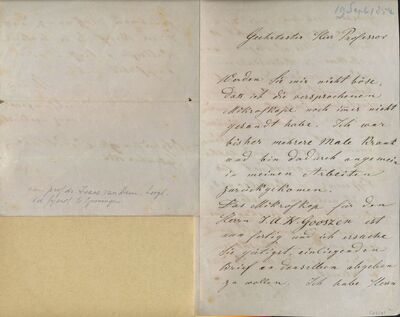 19 Sept. 1854
Geehrtester Herr Professor
Werden Sie mir nicht böse,
dass ich die versprochenen
Mikroskope noch imer nicht
gesandt habe. Ich war
bisher mehrere Male Krank
und bin dadurch ungemein
in meinen Arbeiten
zurückgekomen.
Das Mikroskop für den
Herrn Gooszen ist
nun fertig und ich ersuche
Sie gütigst, einliegenden
Brief an denselben abgeben
zu wollen. Ich habe Ihren
aan prof. dr.
te Groningen